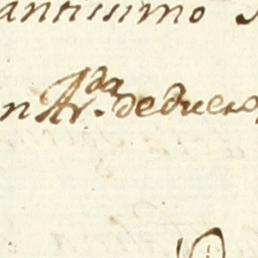 antissimo
n Ar.da deduero